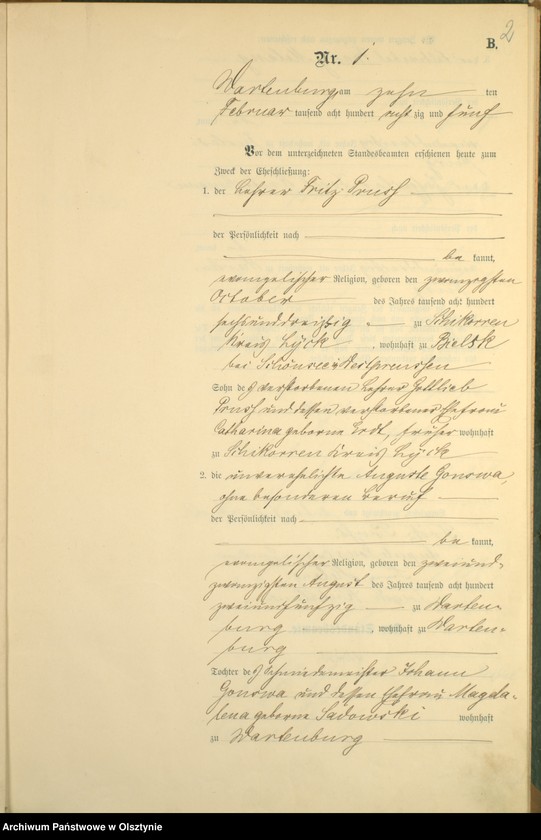 2
B.
Nr. 1
Wartenburg am zehn ten
Februar tausend acht hundert acht zig und fünf
Vor dem unterzeichneten Standesbeamten erschienen heute zum
Zweck der Eheschließung:
1. der Lehrer Fritz
der Persönlichkeit nach
be kannt,
evangelischer Religion, geboren den zwanzigsten
October des Jahres tausend acht hundert
sechsunddreißig zu Schikorren
Kreis Lyck, wohnhaft zu Bielsk
bei Schönsee Westpreussen
Sohn des verstorbenen Lehrer Gottlieb
und dessen verstorbenen Ehefrau
Catharina geborne früher wohnhaft
zu Schikorren Kreis Lyck
2. die unverehelichte Auguste Gonswa,
ohne besonderen Beruf
der Persönlichkeit nach
be kannt,
evangelischer Religion, geboren den zweiund-
zwanzigsten August des Jahres tausend acht hundert
zweiundfünfzig zu Warten-
burg, wohnhaft zu Warten-
burg
Tochter des Schmiedemeister Johann
Gonswa und dessen Ehefrau Magda-
lena geborne Sadowski wohnhaft
zu Wartenburg
Archiwum Państwowe w Olsztynie